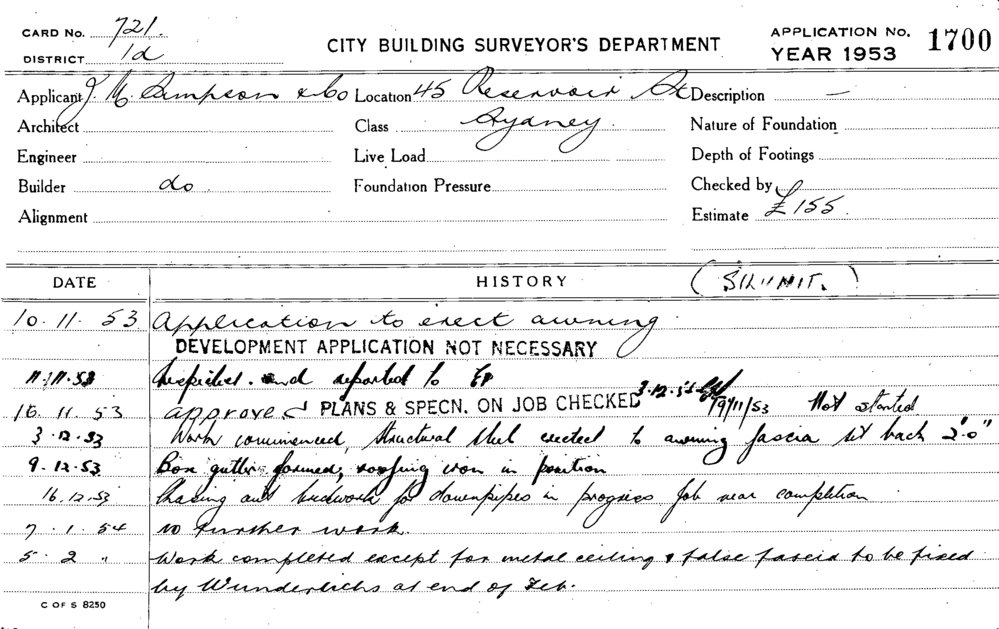 CARD No. 721.
DISTRICT 1d
CITY BUILDING SURVEYOR'S DEPARTMENT
APPLICATION No. 1700
YEAR 1953
Applicant J. M. Simpson & Co Location 45 Reservoir St Description —
Architect Class Sydney Nature of Foundation
Engineer Live Load Depth of Footings
Builder do. Foundation Pressure Checked by
Alignment Estimate £155.
DATE HISTORY
10.11.53 Application to erect awning.
DEVELOPMENT APPLICATION NOT NECESSARY
11.11.53 Inspected and reported to
16.11.53 approved PLANS & SPECN. ON JOB CHECKED 3.12.53 19/11/53 Not started
3.12.53 Work commenced, structural steel erected to awning fascia set back 2'0"
9.12.53 Box gutter formed, roofing iron in position
16.12.53 Chasing out brickwork for downpipes in progress Job near completion
7.1.54 no further work.
5.2 " Work completed except for metal ceiling & false fascia to be fixed
by Wunderlichs at end of Feb.
C OF S 8250